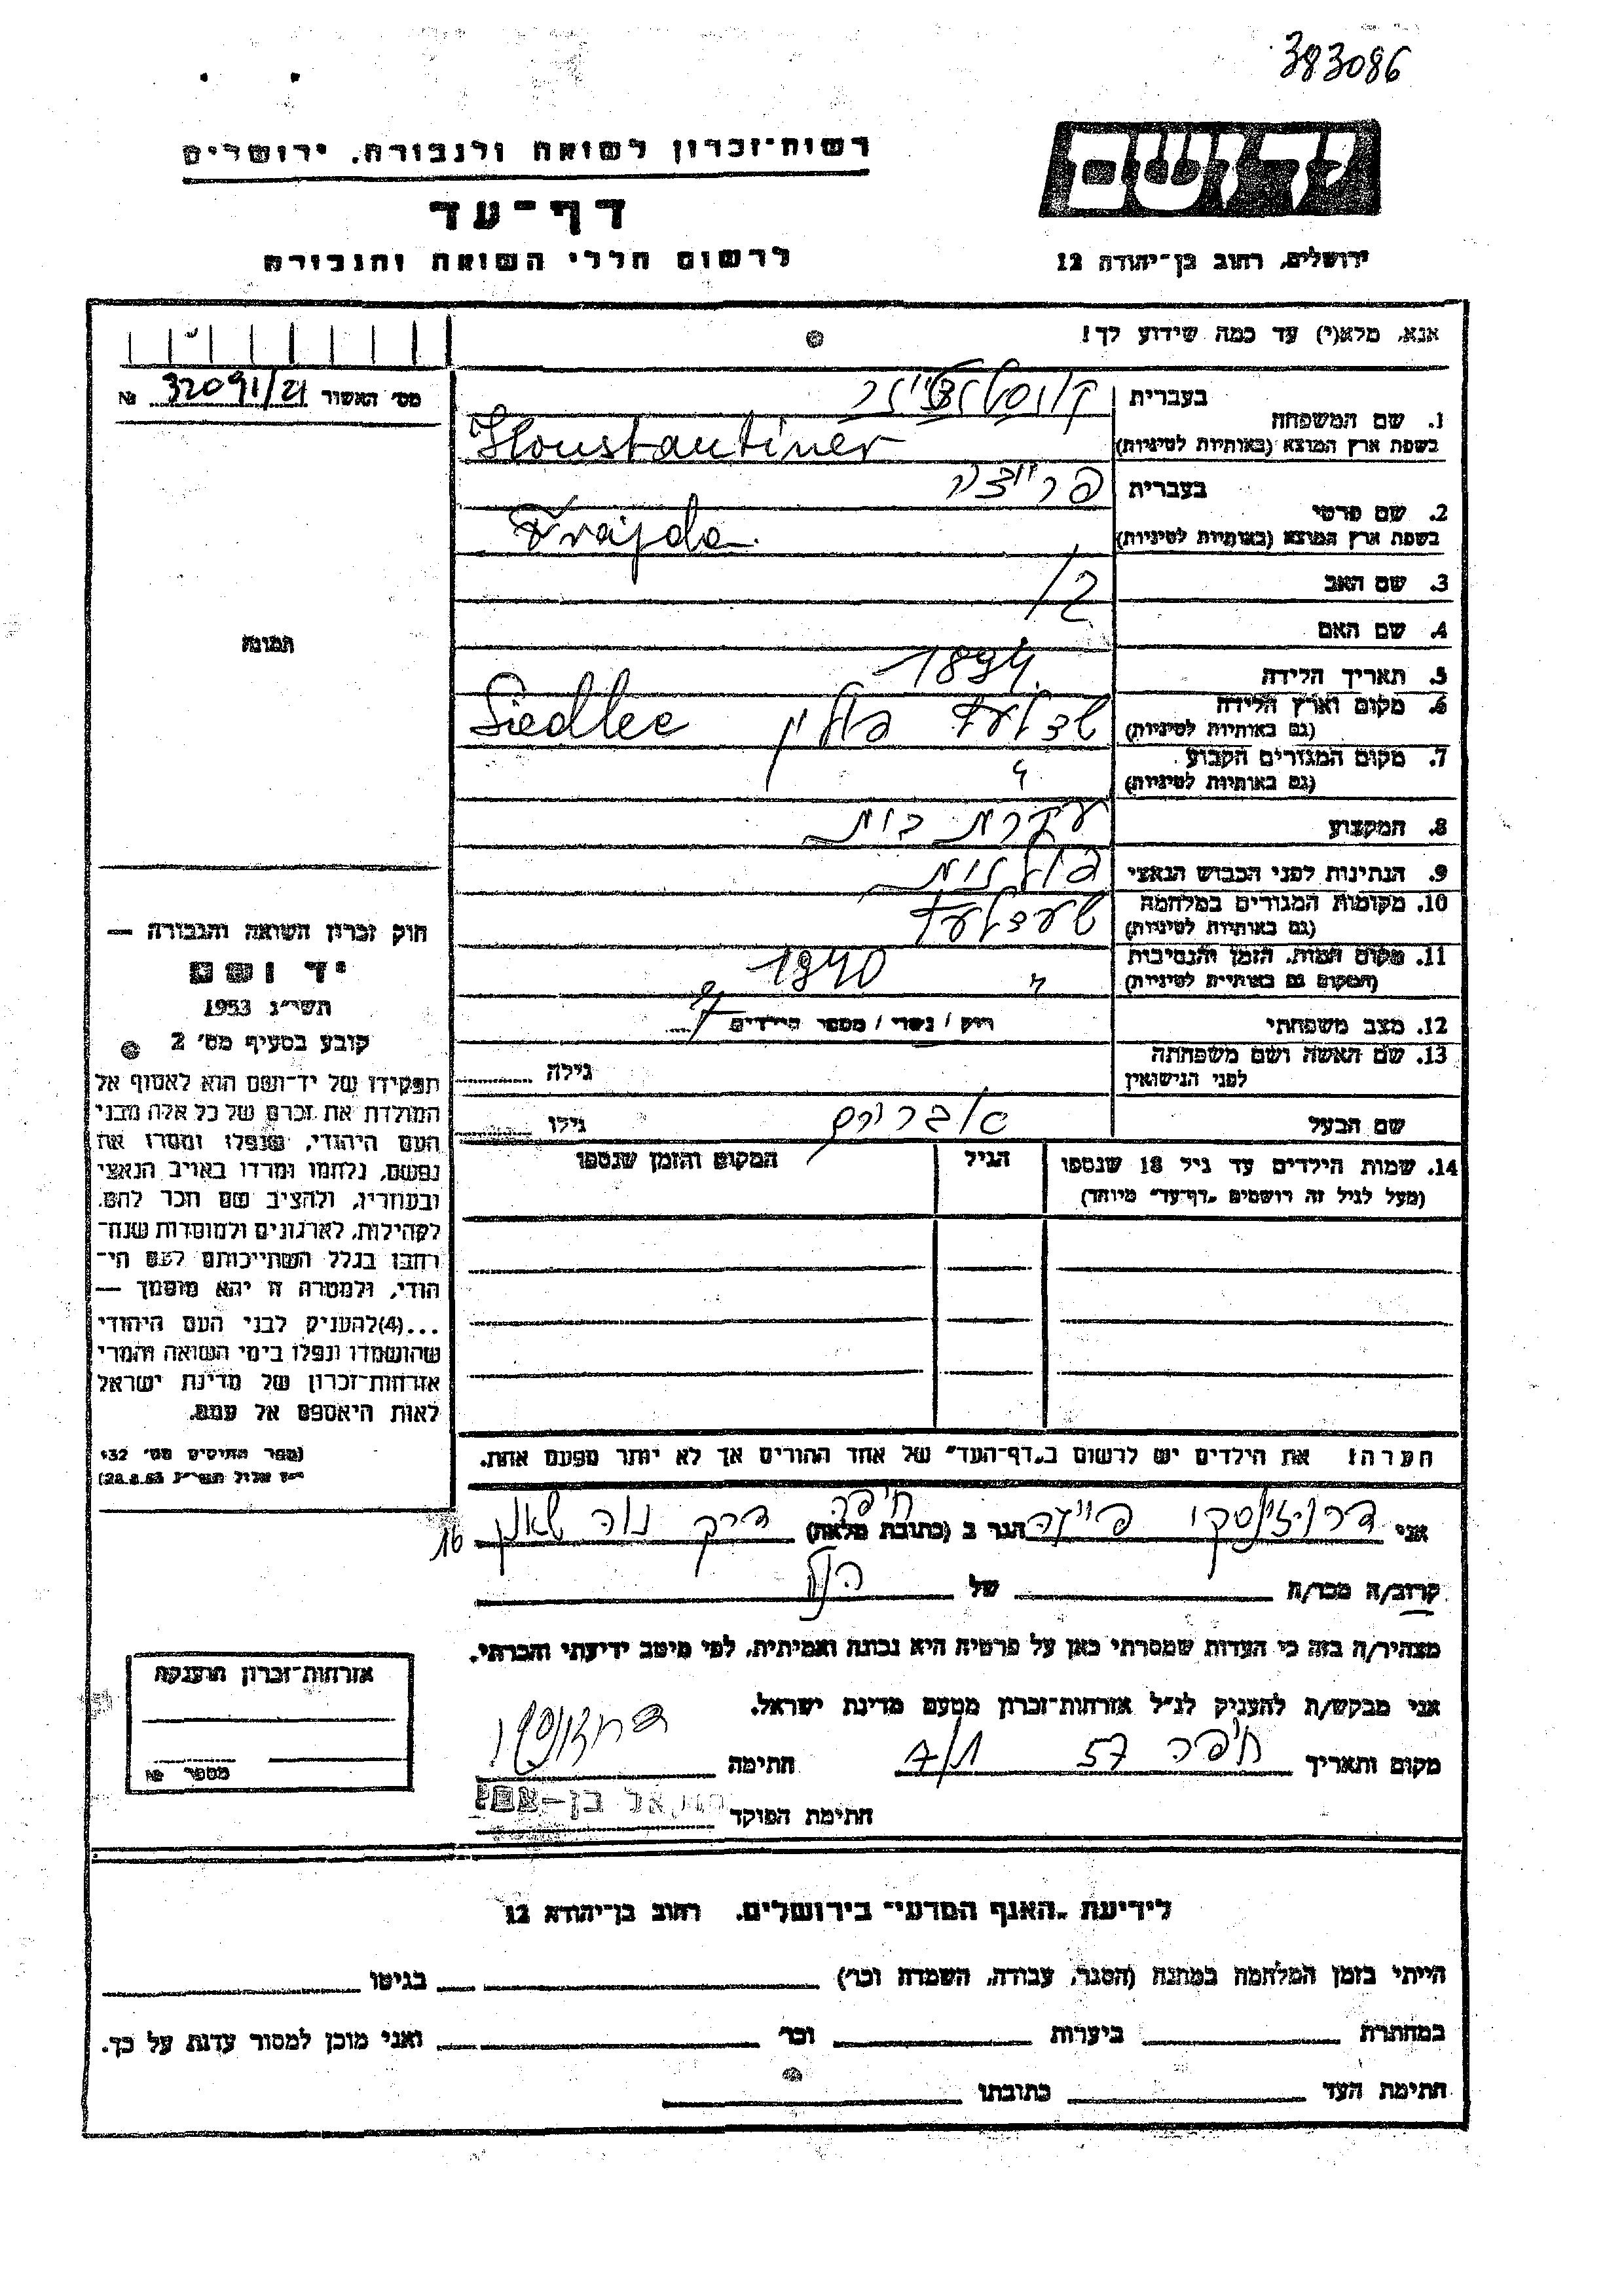 383086
רשות־זכרון לשואה ולגבורה, ירושלים
יד ושם
דף־עד
לרשום חללי השואה והגבורה
ירושלים, רחוב בן־יהודה 12
אנא, מלא(י) עד כמה שידוע לך!
מס׳ האשור 32091/21 №
1. שם המשפחה
בעברית
בשפת ארץ המוצא (באותיות לטיניות) Konstantiner
2. שם פרטי
בעברית פריידה
בשפת ארץ המוצא (באותיות לטיניות) Frajda
3. שם האב
4. שם האם
5. תאריך הלידה 1894
6. מקום וארץ הלידה פולין Siedlce
(גם באותיות לטיניות)
7. מקום המגורים הקבוע "
(גם באותיות לטיניות)
8. המקצוע עקרת בית
9. הנתינות לפני הכבוש הנאצי פולנית
10. מקומות המגורים במלחמה שעדלעץ
(גם באותיות לטיניות)
11. מקום המות, הזמן והנסיבות " 1940
(המקום גם באותיות לטיניות)
12. מצב משפחתי רווק / נשוי / מספר הילדים
13. שם האשה ושם משפחתה
לפני הנישואין
גילה
שם הבעל גילו
14. שמות הילדים עד גיל 18 שנספו הגיל המקום והזמן שנספו
(מעל לגיל זה רושמים „דף־עד״ מיוחד)
הערה! את הילדים יש לרשום ב„דף־העד״ של אחד ההורים אך לא יותר מפעם אחת.
תמונה
חוק זכרון השואה והגבורה —
יד ושם
תשי״ג 1953
קובע בסעיף מס׳ 2
תפקידו של יד־ושם הוא לאסוף אל
המולדת את זכרם של כל אלה מבני
העם היהודי, שנפלו ומסרו את
נפשם, נלחמו ומרדו באויב הנאצי
ובעוזריו, ולהציב שם וזכר להם,
לקהילות, לארגונים ולמוסדות שנח־
רבו בגלל השתייכותם לעם הי־
הודי, ולמטרה זו יהא מוסמך —
...(4)להעניק לבני העם היהודי
שהושמדו ונפלו בימי השואה והמרי
אזרחות־זכרון של מדינת ישראל
לאות היאספם אל עמם.
(ספר החוקים מס׳ 132
י״ז אלול תשי״ג 28.8.53)
אני פריידה הגר ב (כתובת מלאה) חיפה דרך נוה שאנן 16
קרוב/ה מכר/ה של
מצהיר/ה בזה כי העדות שמסרתי כאן על פרטיה היא נכונה ואמיתית, לפי מיטב ידיעתי והכרתי.
אני מבקש/ת להעניק לנ״ל אזרחות־זכרון מטעם מדינת ישראל.
מקום ותאריך חיפה 57 חתימה
חתימת הפוקד
אזרחות־זכרון הוענקה
מספר №
לידיעת „האגף המדעי״ בירושלים, רחוב בן־יהודא 12
הייתי בזמן המלחמה במחנה (הסגר, עבודה, השמדה וכו׳) בגיטו
במחתרת ביערות וכו׳ ואני מוכן למסור עדות על כך.
חתימת העד כתובתו